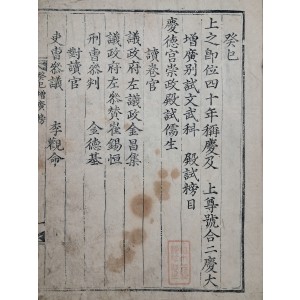 癸巳
上之卽位四十年稱慶及 上尊號合二慶大
增廣別試文武科 殿試榜目
慶德宮崇政殿試儒生
讀卷官
議政府左議政金昌集
議政府左參贊崔錫恒
刑曹參判 金德基
對讀官
吏曹參議 李觀命
癸巳增廣榜